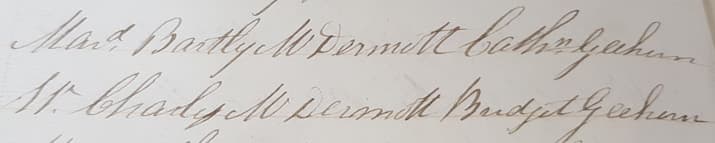 Mard. Bartly McDermott Cathn. Geehern
W. Charly McDermott Bridget Geehern